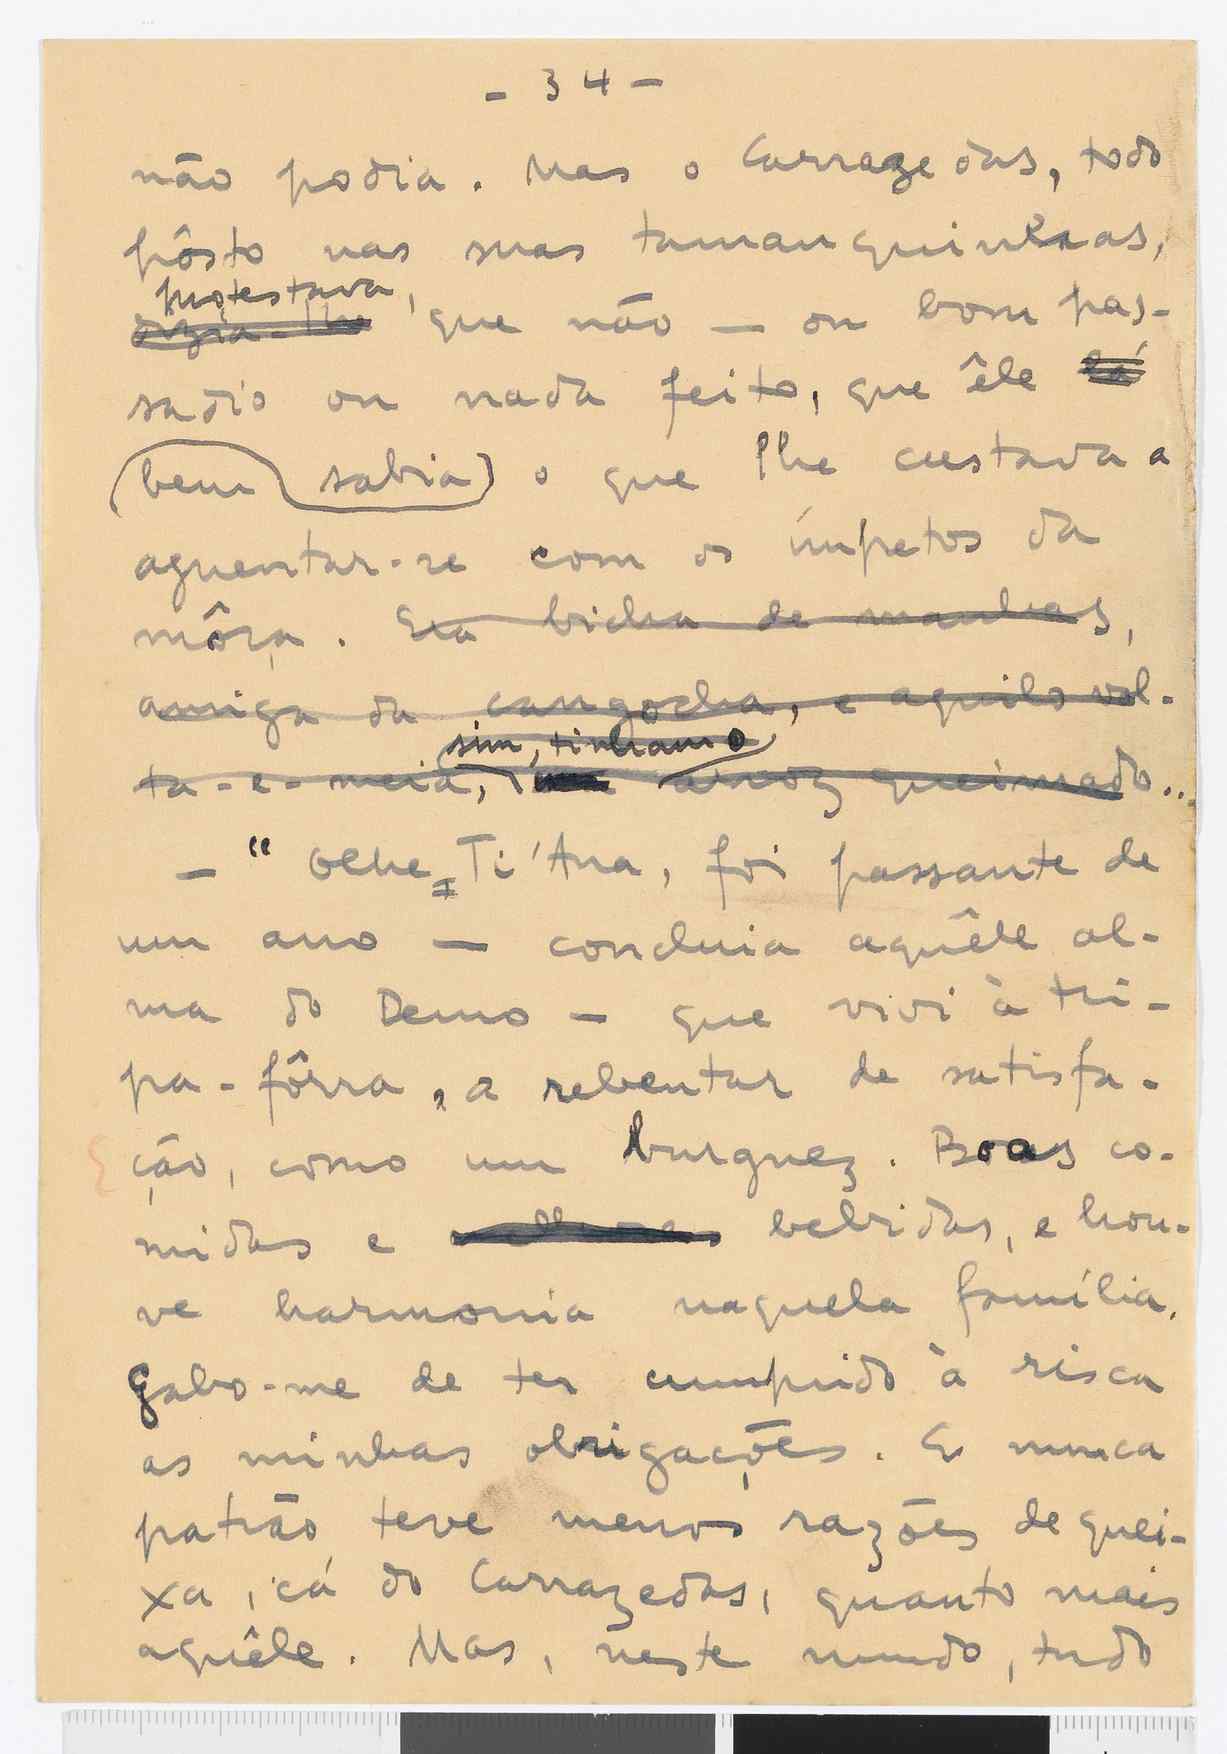 - 34 -
não podia. Mas o Carrazedas, todo
pôsto nas suas tamanquinhas,
protestava,
dizia-lhe que não — ou bom pas-
sadio ou nada feito, que êle lá
bem sabia o que lhe custava a
aguentar-se com os ímpetos da
môça. Era bicha de manhas,
amiga da cangocha, e aquilo vol-
sim, tinhamo
ta-e-meia, arroz queimado...
— "Olhe, Ti'Ana, foi passante de
um ano — concluia aquêle al-
ma do Demo — que vivi à tri-
pa-fôrra, a rebentar de satisfa-
ção, como um burguez. Boas co-
midas e bebidas, e hou-
ve harmonia naquela família.
Gabo-me de ter cumprido à risca
as minhas obrigações. E nunca
patrão teve menos razões de quei-
xa, cá do Carrazedas, quanto mais
aquêle. Mas, neste mundo, tudo